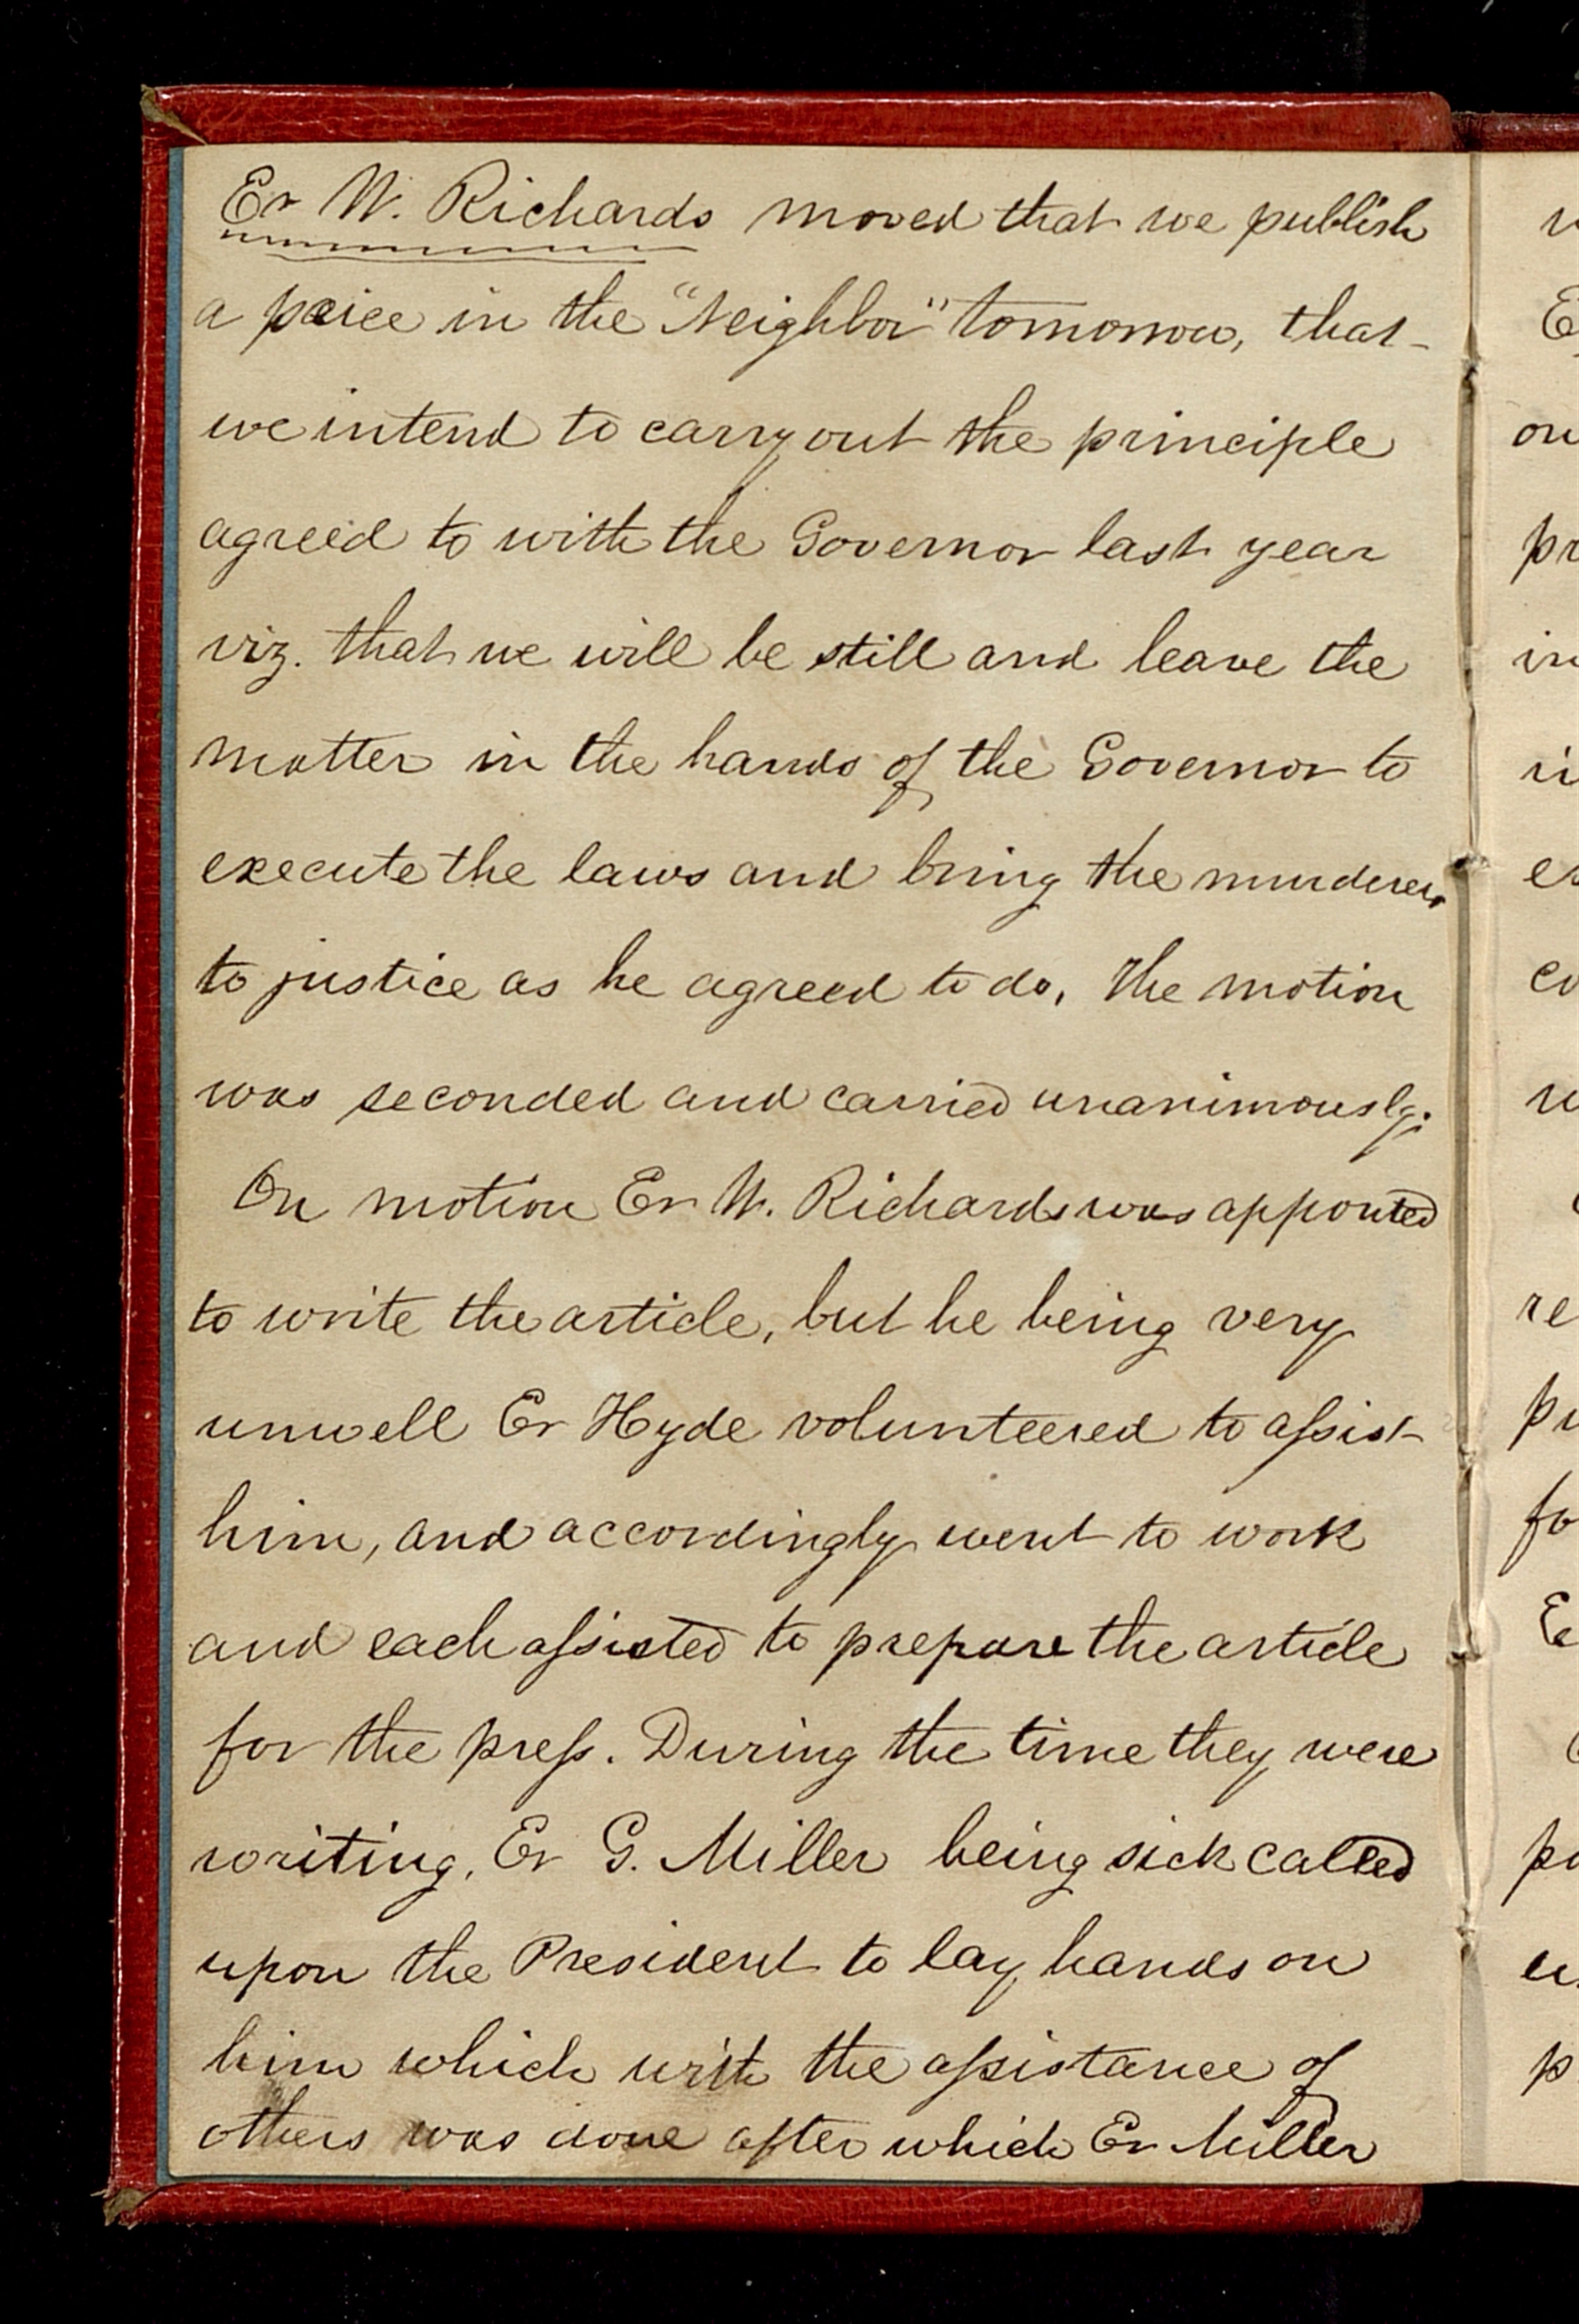 Er W. Richards moved that we publish
a peice in the "Neighbor" tomorrow, that
we intend to carry out the principle
agreed to with the Governor last year
viz. that we will be still and leave the
matter in the hands of the Governor to
execute the laws and bring the murderers
to justice as he agreed to do. The motion
was seconded and carried unanimously.
On motion Er W. Richards was apponted
to write the article, but he being very
unwell Er Hyde volunteered to assist
him, and accordingly went to work
and each assisted to prepare the article
for the press. During the time they were
writing, Er G. Miller being sick called
upon the President to lay hands on
him which with the assistance of
others was done after which Er Miller